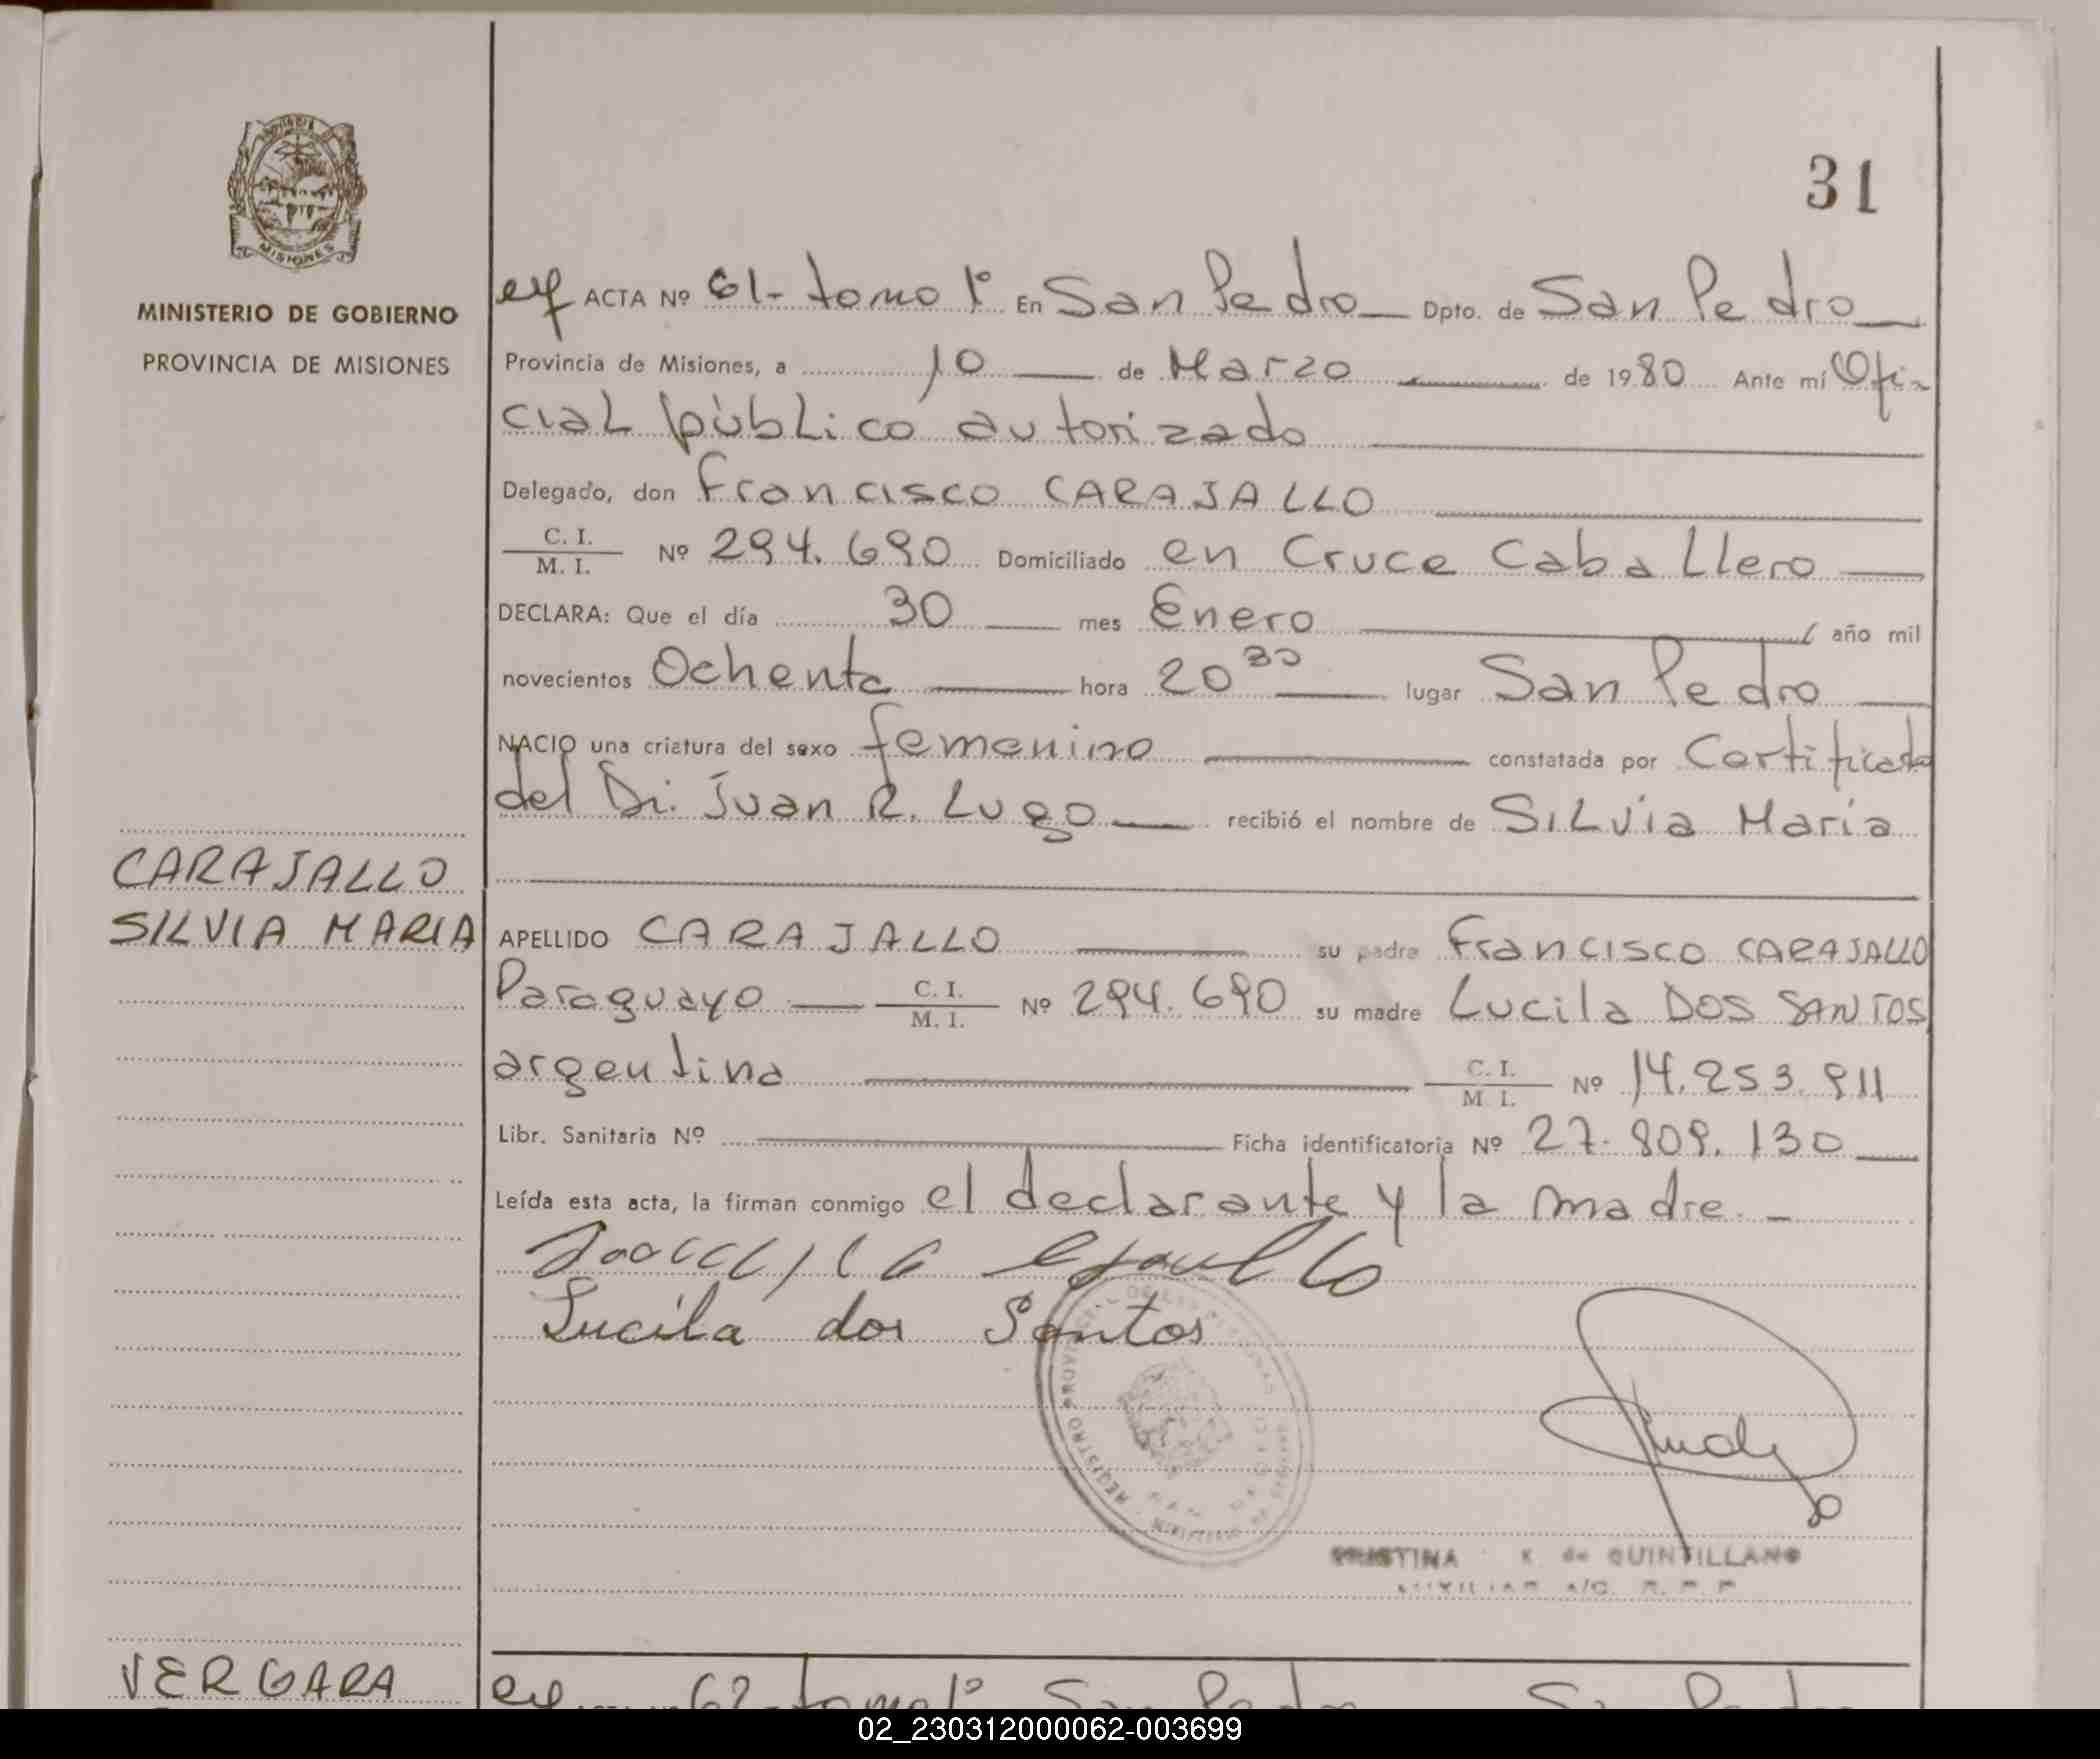 31
MINISTERIO DE GOBIERNO
PROVINCIA DE MISIONES
MISIONES
ACTA Nº 61- tomo 1º En San Pedro Dpto. de San Pedro
Provincia de Misiones, a 10 de Marzo de 1980 Ante mí Ofi-
cial público autorizado
Delegado, don Francisco CARAJALLO
C. I. / M. I. Nº 294.690 Domiciliado en Cruce Caballero
DECLARA: Que el día 30 mes Enero año mil
novecientos Ochenta hora 20 30 lugar San Pedro
NACIO una criatura del sexo femenino constatada por Certificado
del Dr. Juan R. Lugo recibió el nombre de Silvia Maria
CARAJALLO
SILVIA MARIA
APELLIDO CARAJALLO su padre Francisco CARAJALLO
Paraguayo C. I. / M. I. Nº 294.690 su madre Lucila DOS SANTOS
argentina C. I. / M. I. Nº 14.253.911
Libr. Sanitaria Nº Ficha identificatoria Nº 27.809.130
Leída esta acta, la firman conmigo el declarante y la madre.-
Lucila dos Santos
REGISTRO PROVINCIAL DE LAS PERSONAS
CRISTINA K de QUINTILLANO
AUXILIAR A/C. R. P. P.
VERGARA
62- tomo 1º San Pedro San Pedro
02_230312000062-003699